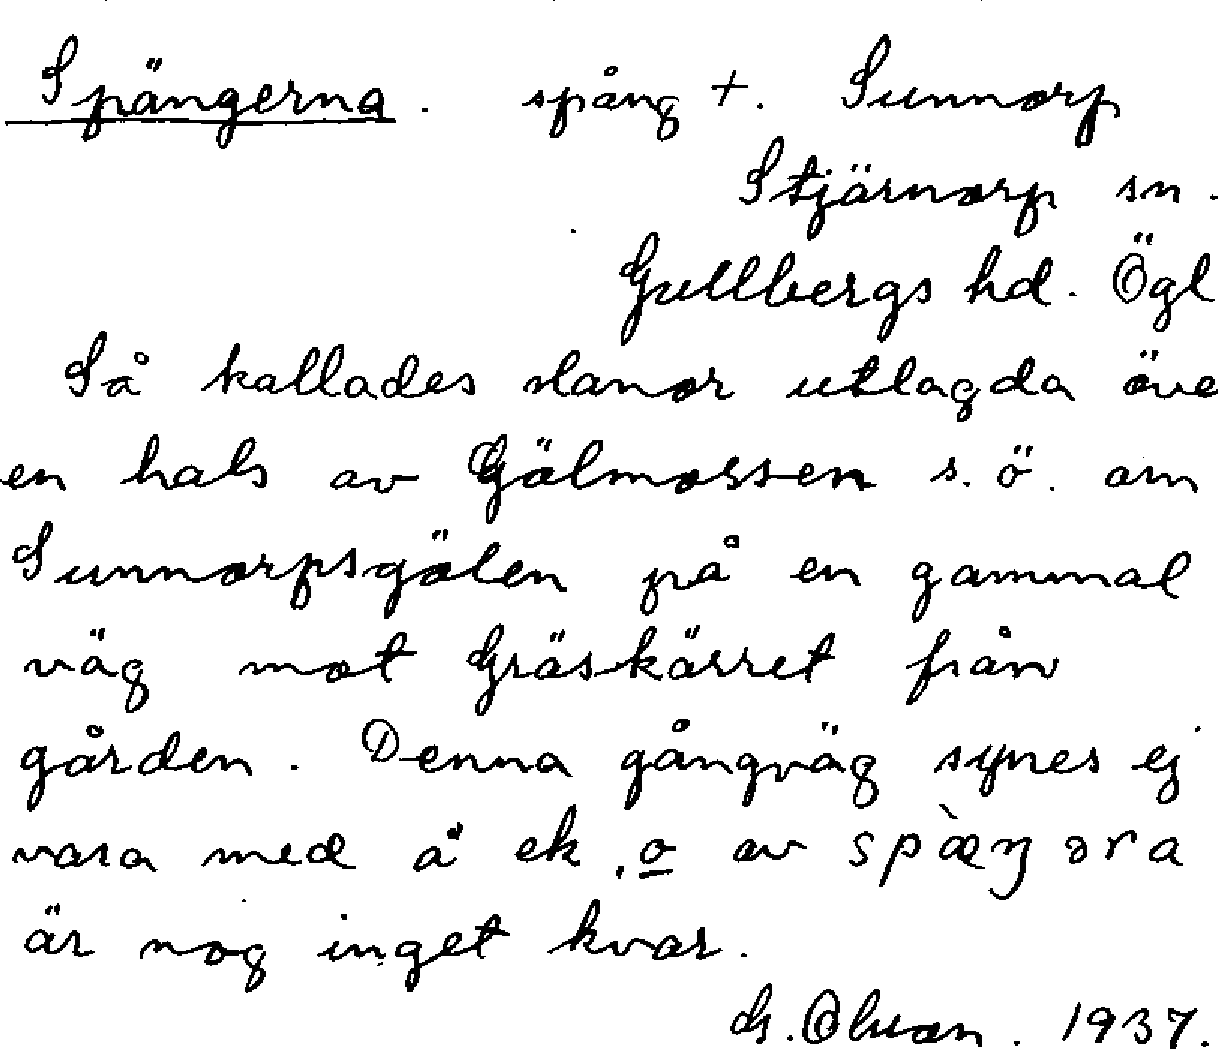 Spängerna. spång +. Sunnorp
Stjärnorp sn.
Gullbergs hd. Ögl
Så kallades slanor utlagda öve
en hals av Gölmossen s. ö. om
Sunnorpsgölen på en gammal
väg mot Gräskärret från
gården. Denna gångväg synes ej
vara med å ek, o av spæ̀ŋəra
är nog inget kvar.
G. Olsson. 1937.